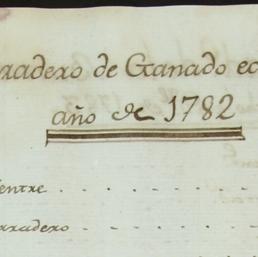 rradero de Ganado ec
año de 1782
entre
rradero